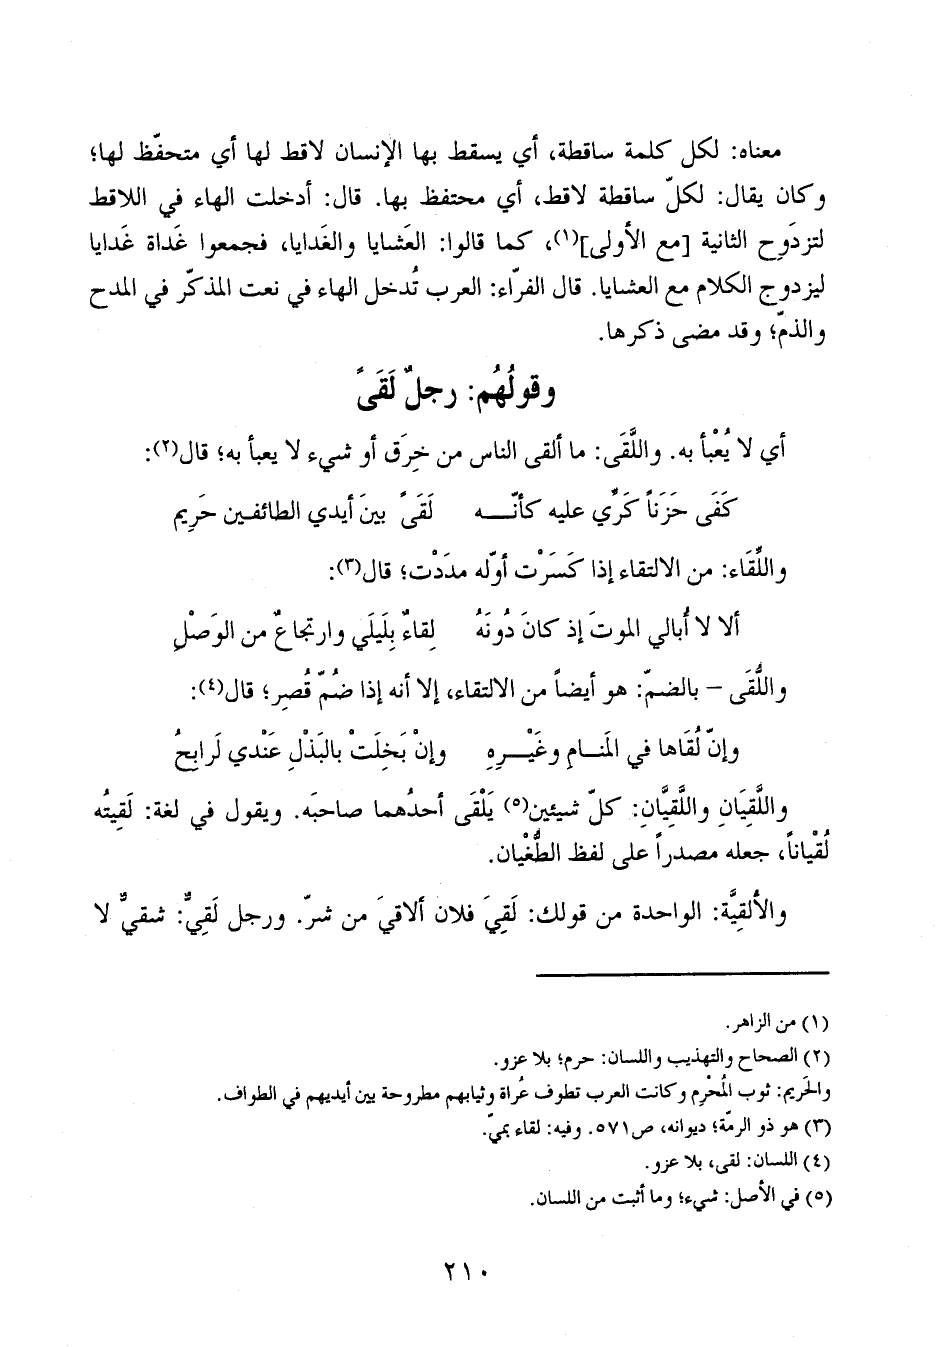 معناه: لكل كلمة ساقطة، أي يسقط بها الإنسان لاقط لها أي متحفّظ لها؛
وكان يقال: لكلّ ساقطة لاقط، أي محتفظ بها. قال: أدخلت الهاء في اللاقط
لتزدَوِج الثانية [مع الأولى](١)، كما قالوا: العَشايا والغَدايا، فجمعوا غَداة غَدايا
ليزدوج الكلام مع العشايا. قال الفرّاء: العرب تُدخل الهاء في نعت المذكّر في المدح
والذمّ؛ وقد مضى ذكرها.
وقولُهُم: رجلٌ لَقَىً
أي لا يُعْبأ به. واللَّقَى: ما ألقى الناس من خِرَق أو شيء لا يعبأ به؛ قال(٢):
كَفَى حَزَناً كَرِّي عليه كأنّـــه لَقَىً بينَ أيدي الطائفـين حَرِيم
واللِّقَاء: من الالتقاء إذا كَسَرْت أوّله مدَدْت؛ قال(٣):
ألا لا أُبالي الموتَ إذ كانَ دُونَهُ لِقاءٌ بِلَيلَي وارتجاعٌ من الوَصْلِ
واللُّقَى – بالضمّ: هو أيضاً من الالتقاء، إلا أنه إذا ضُمّ قُصِر؛ قال(٤):
وإنّ لُقَاها في المَنـــامِ وغَيْــرِهِ وإنْ بَخِلَتْ بالبَذْلِ عَنْدي لَرابِحُ
واللَّقِيَانِ واللَّقِيَّانِ: كلّ شيئين(٥) يَلْقَى أحدُهما صاحبَه. ويقول في لغة: لَقِيتُه
لُقْياناً، جعله مصدراً على لفظ الطُّغْيان.
والأُلقِيَّة: الواحدة من قولك: لَقِيَ فلان ألاقيَ من شرّ. ورجل لَقِيٌّ: شقيٌّ لا
(١) من الزاهر.
(٢) الصحاح والتهذيب واللسان: حرم؛ بلا عزو.
والحَريم: ثوب المُحْرِم وكانت العرب تطوف عُراة وثيابهم مطروحة بين أيديهم في الطواف.
(٣) هو ذو الرمّة؛ ديوانه، ص٥٧١. وفيه: لقاء بميّ.
(٤) اللسان: لقى، بلا عزو.
(٥) في الأصل: شيء؛ وما أثبت من اللسان.
٢١٠